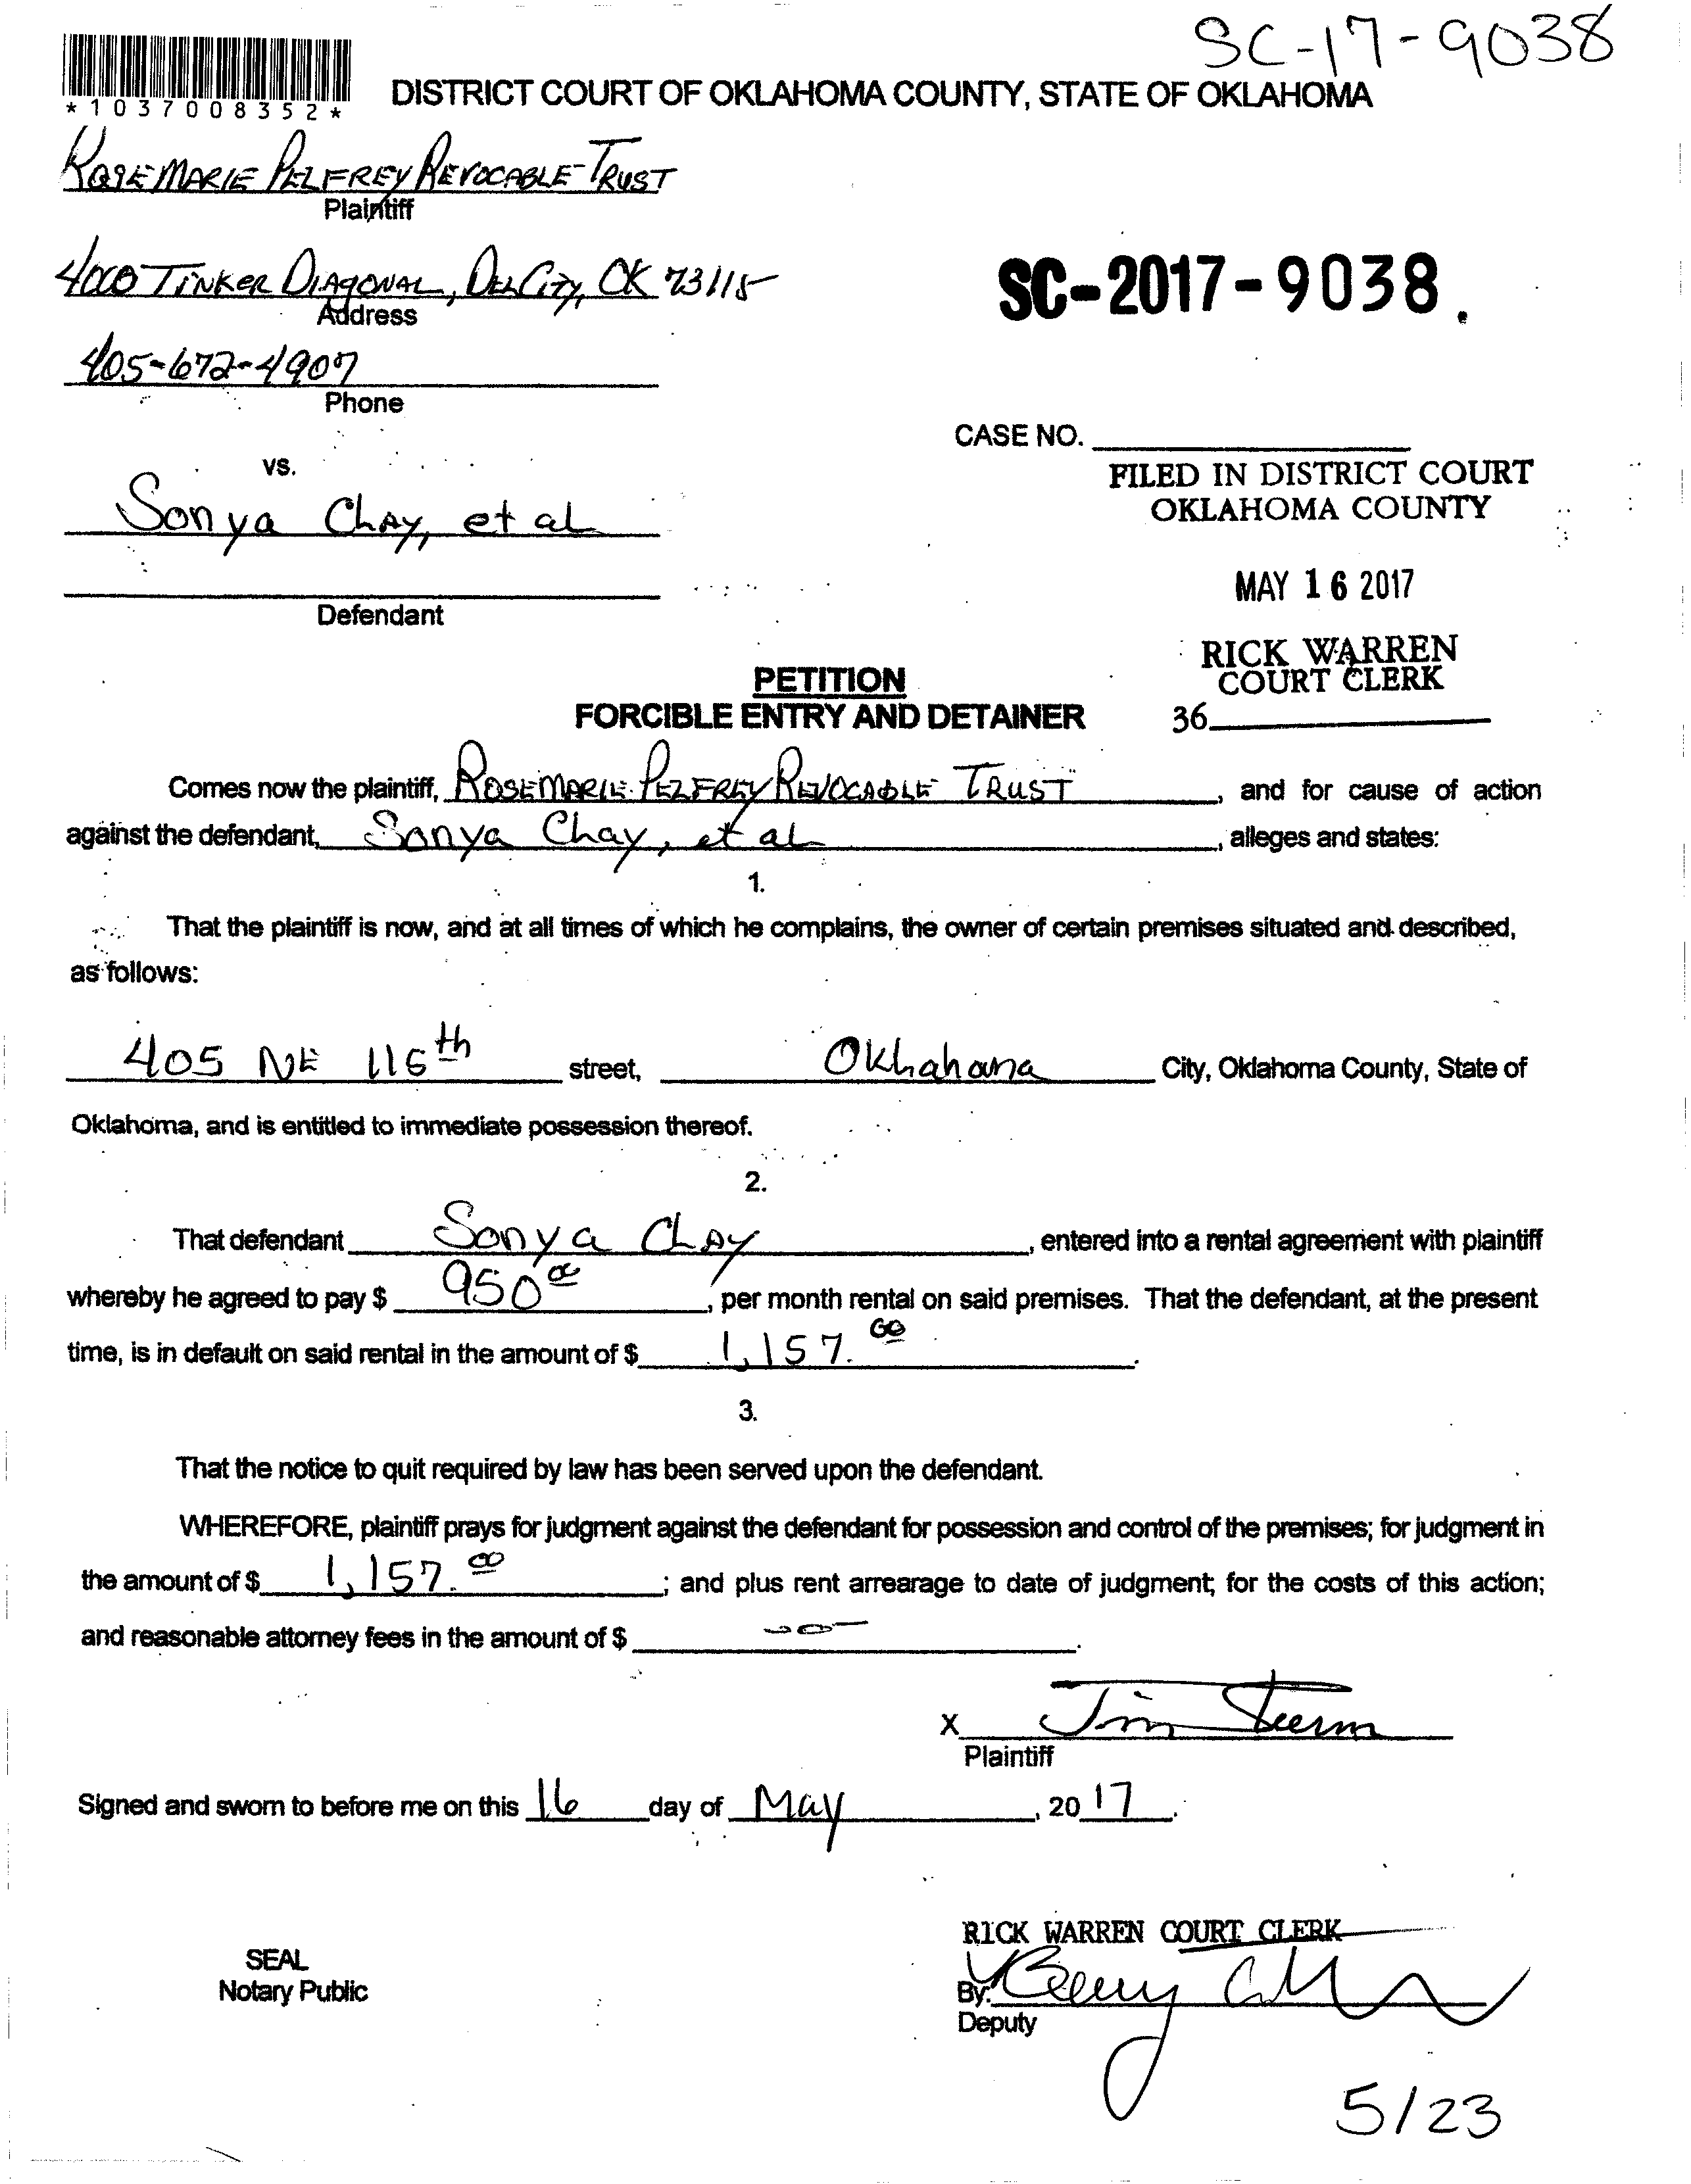 SC-17-9038
*1037008352*
DISTRICT COURT OF OKLAHOMA COUNTY, STATE OF OKLAHOMA
ROSEMARIE PELFREY REVOCABLE TRUST
Plaintiff
4000 TINKER DIAGONAL, DEL CITY, OK 73115
Address
SC-2017-9038.
405-672-4907
Phone
CASE NO.
vs.
FILED IN DISTRICT COURT
OKLAHOMA COUNTY
Sonya Chay, et al
MAY 16 2017
Defendant
RICK WARREN
COURT CLERK
36
PETITION
FORCIBLE ENTRY AND DETAINER
Comes now the plaintiff, ROSEMARIE PELFREY REVOCABLE TRUST, and for cause of action
against the defendant, Sonya Chay, et al, alleges and states:
1.
That the plaintiff is now, and at all times of which he complains, the owner of certain premises situated and described,
as follows:
405 NE 116th street, Oklahoma City, Oklahoma County, State of
Oklahoma, and is entitled to immediate possession thereof.
2.
That defendant Sonya Chay, entered into a rental agreement with plaintiff
whereby he agreed to pay $ 950 00, per month rental on said premises. That the defendant, at the present
time, is in default on said rental in the amount of $ 1,157.00.
3.
That the notice to quit required by law has been served upon the defendant.
WHEREFORE, plaintiff prays for judgment against the defendant for possession and control of the premises; for judgment in
the amount of $ 1,157.00; and plus rent arrearage to date of judgment; for the costs of this action;
and reasonable attorney fees in the amount of $ -0-.
X Jim
Plaintiff
Signed and sworn to before me on this 16 day of May, 2017.
RICK WARREN COURT CLERK
SEAL
Notary Public
By:
Deputy
5/23